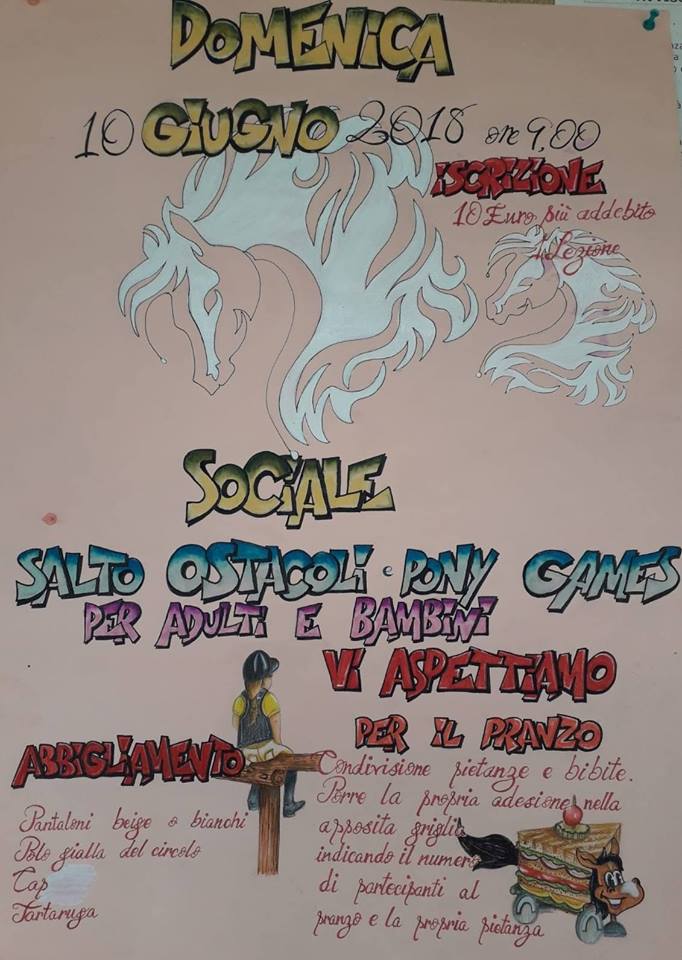 DOMENICA
10 GIUGNO 2018 ore 9,00
ISCRIZIONE
10 Euro più addebito
Lezione
SOCIALE
SALTO OSTACOLI e PONY GAMES
PER ADULTI E BAMBINI
VI ASPETTIAMO
PER IL PRANZO
Condivisione pietanze e bibite.
Porre la propria adesione nella
apposita griglia
indicando il numero
di partecipanti al
pranzo e la propria pietanza
ABBIGLIAMENTO
Pantaloni beige o bianchi
Polo gialla del circolo
Cap
Tartaruga